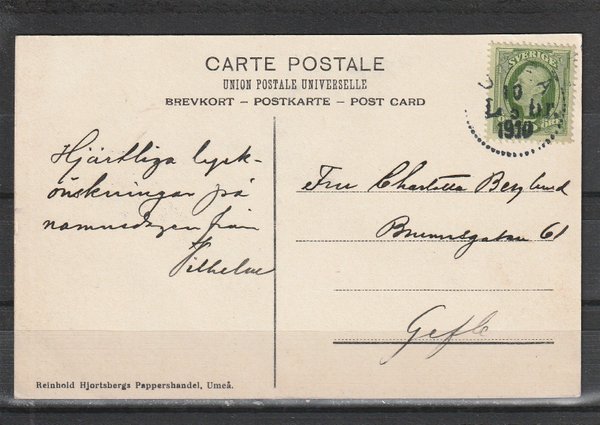 CARTE POSTALE
UNION POSTALE UNIVERSELLE
BREVKORT – POSTKARTE – POST CARD
SVERIGE
10
1910
Hjärtliga lyck-
önskningar på
namnsdagen från
Vilhelm
Fru Charlotta Berglund
Brunnsgatan 61
Gefle
Reinhold Hjortsbergs Pappershandel, Umeå.